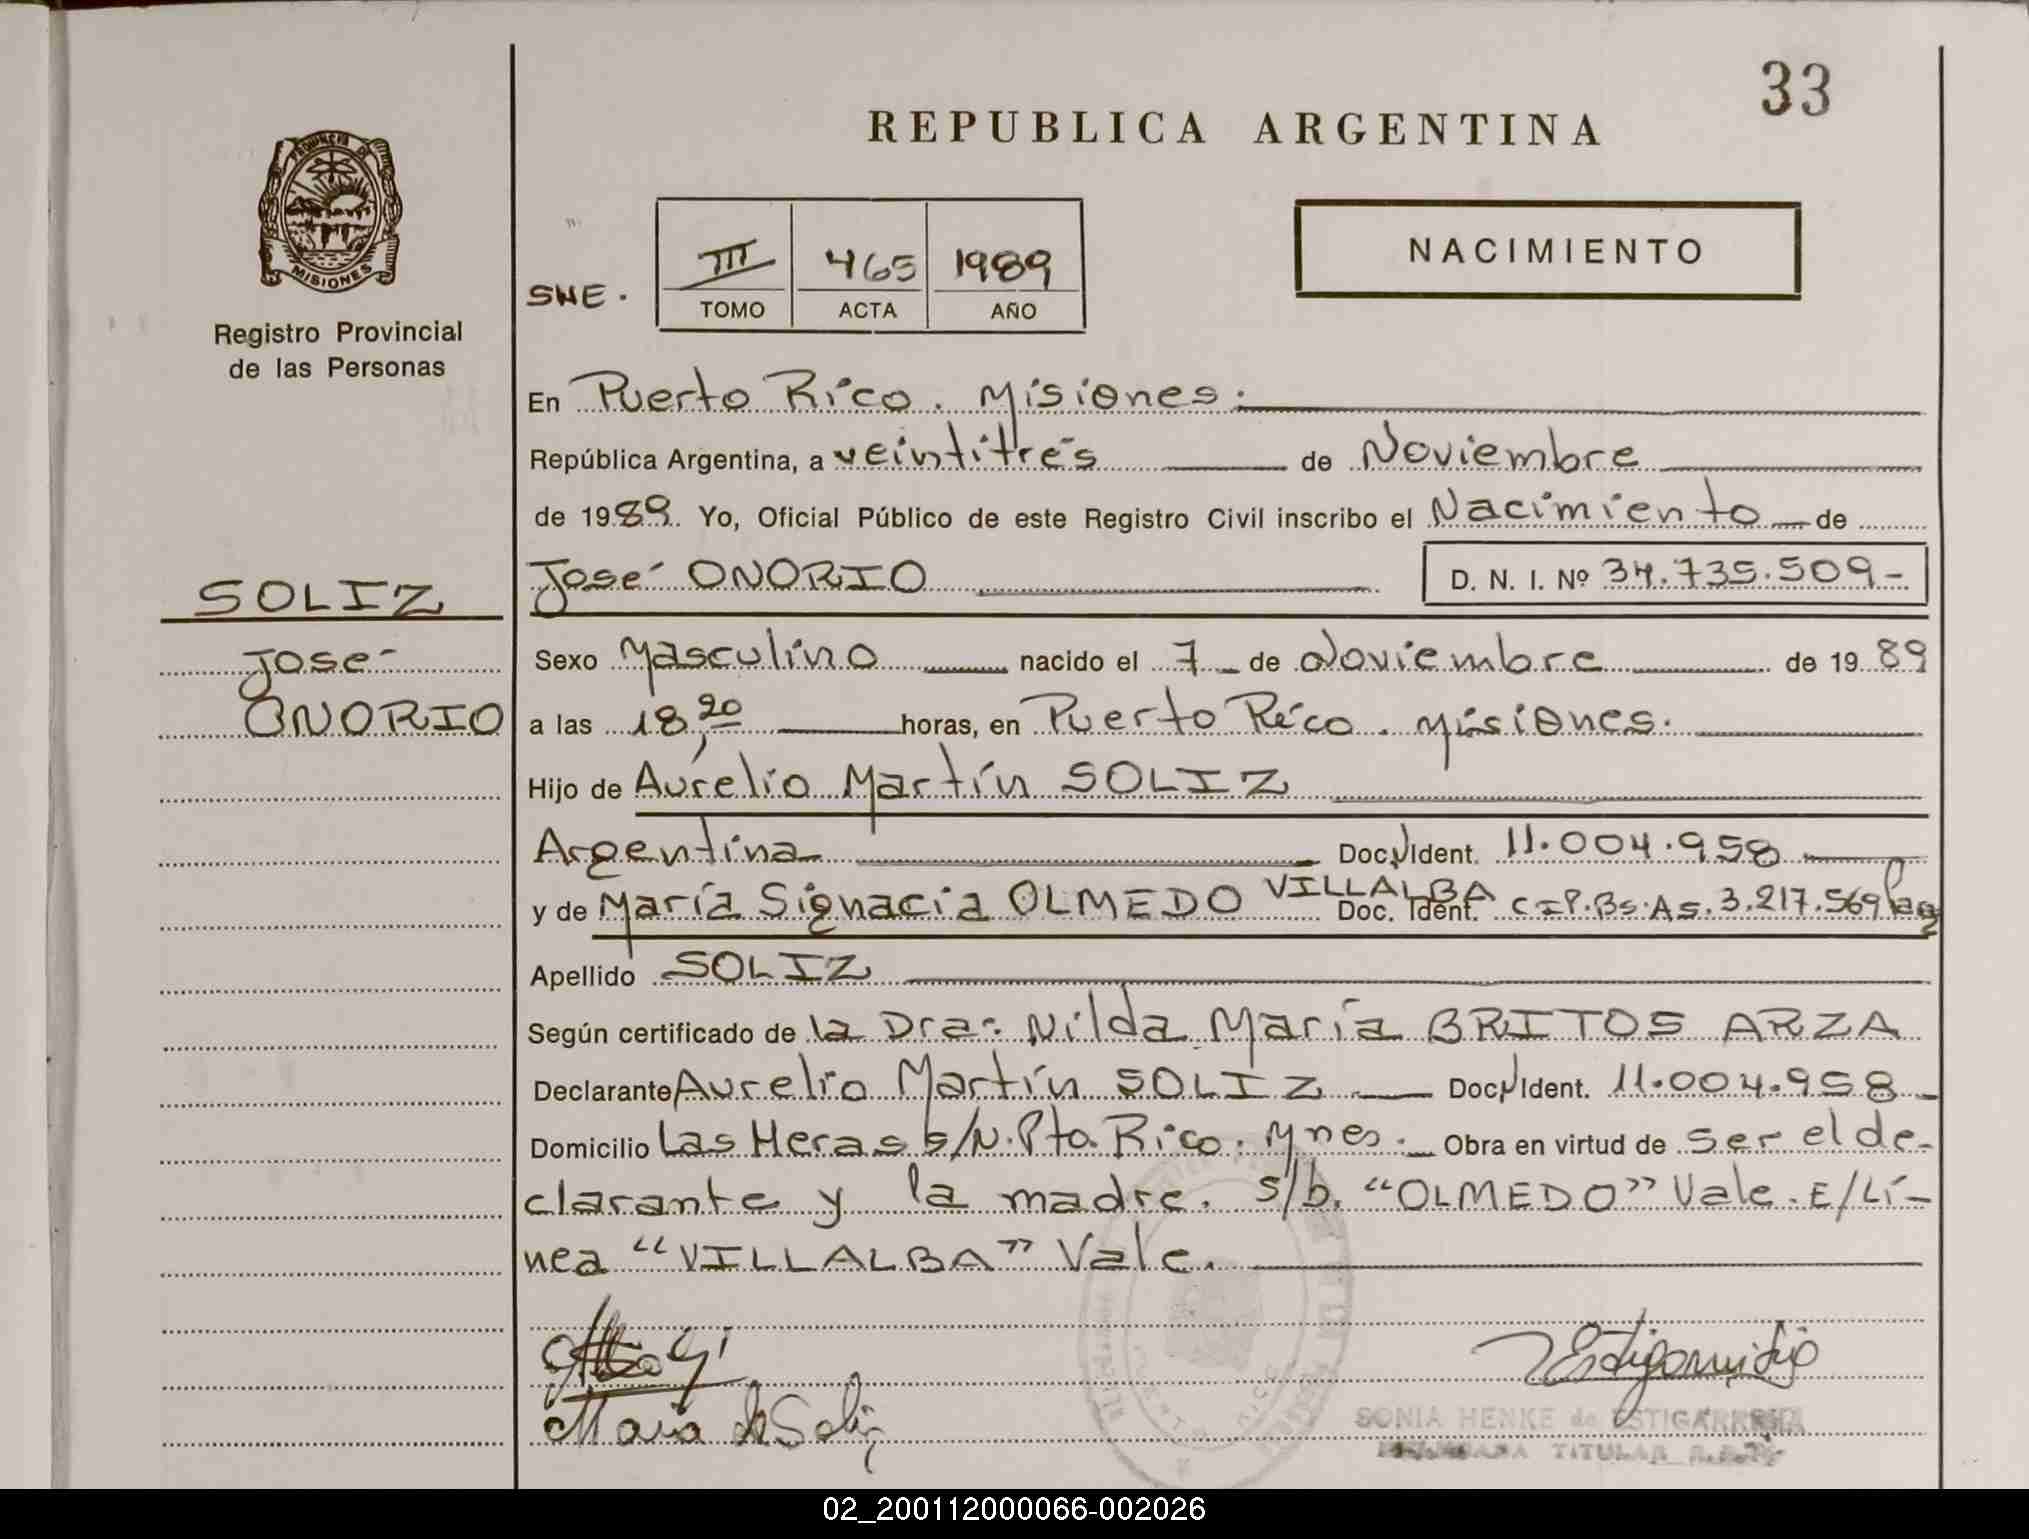 33
REPUBLICA ARGENTINA
PROVINCIA DE
MISIONES
Registro Provincial
de las Personas
SNE.
III 465 1989
TOMO ACTA AÑO
NACIMIENTO
En Puerto Rico. Misiones.
República Argentina, a veintitrés de Noviembre
de 1989. Yo, Oficial Público de este Registro Civil inscribo el Nacimiento de
José ONORIO D. N. I. Nº 34.735.509-
SOLIZ
José
ONORIO
Sexo Masculino nacido el 7 de Noviembre de 1989
a las 18,20 horas, en Puerto Rico. Misiones.
Hijo de Aurelio Martín SOLIZ
Argentina Doc. Ident. 11.004.958
y de María Signacia OLMEDO VILLALBA Doc. Ident. CIP.Bs.As.3.217.569
Apellido SOLIZ
Según certificado de la Dra. Nilda María BRITOS ARZA
Declarante Aurelio Martín SOLIZ Doc. Ident. 11.004.958
Domicilio Las Heras s/N. Pto. Rico. Mnes. Obra en virtud de ser el de-
clarante y la madre. s/b. "OLMEDO" Vale. E/Lí-
nea "VILLALBA" Vale.
Maria de Soliz
SONIA HENKE de ESTIGARRIBIA
TITULAR
02_200112000066-002026